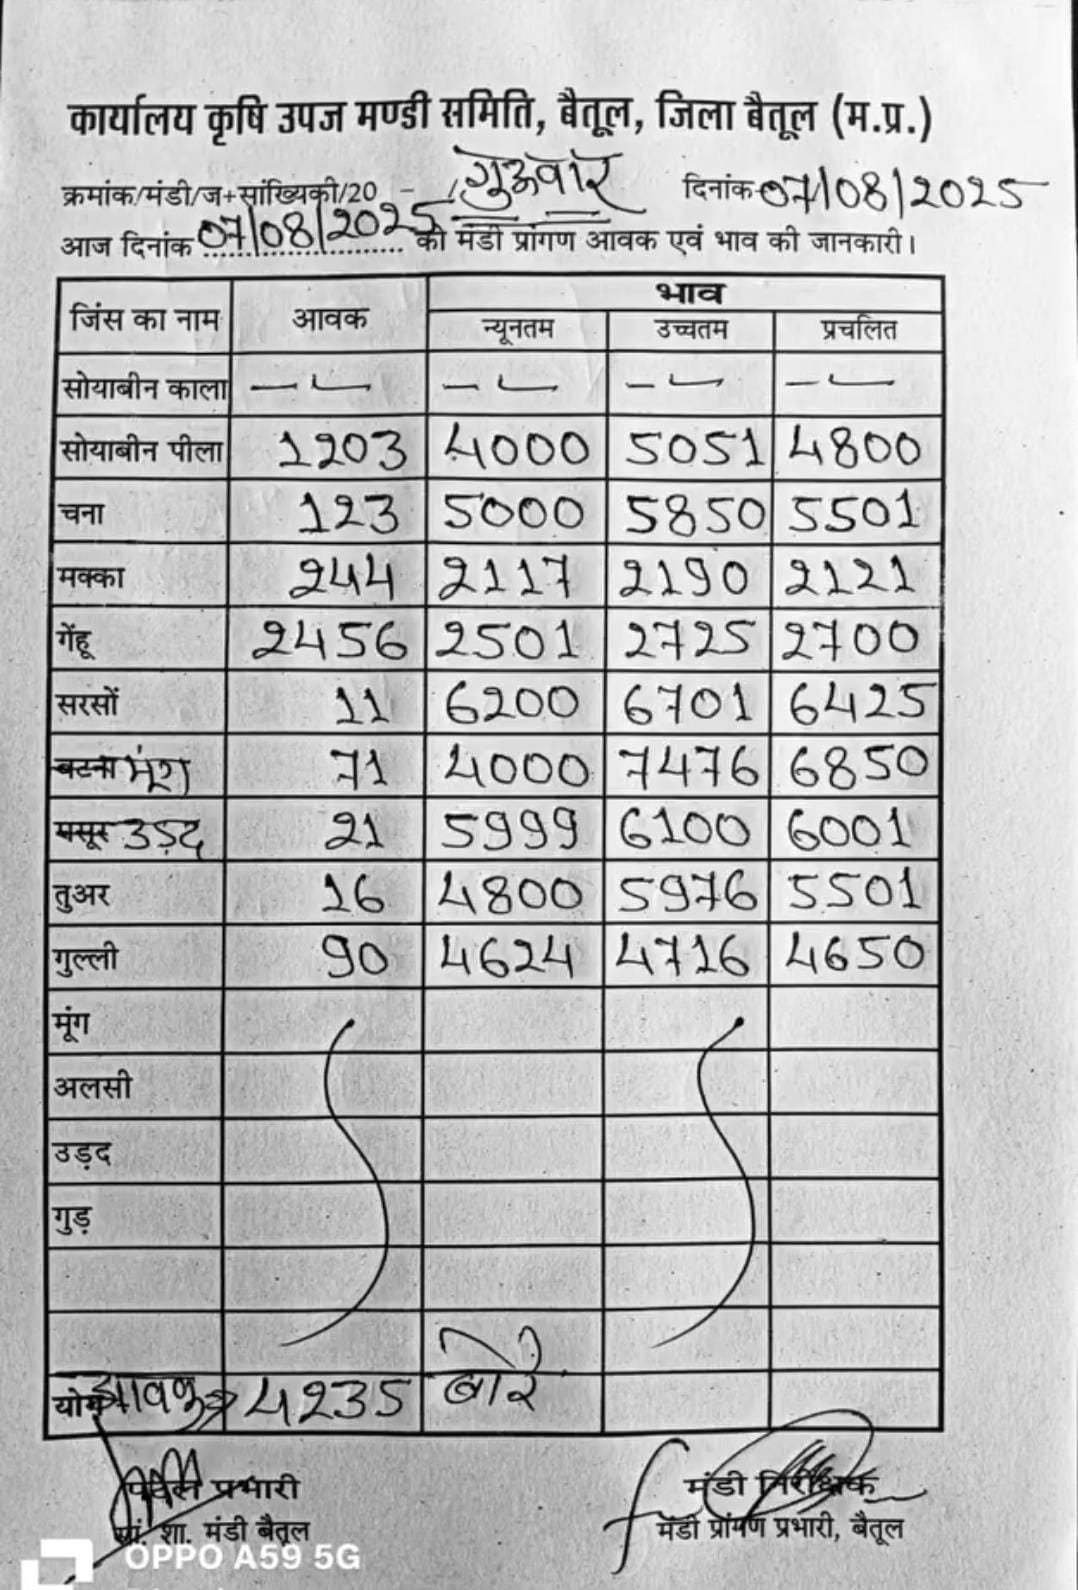 कार्यालय कृषि उपज मण्डी समिति, बैतूल, जिला बैतूल (म.प्र.)
क्रमांक/मंडी/ज+सांख्यिकी/20 - / गुरूवार दिनांक 07/08/2025
आज दिनांक 07/08/2025 को मंडी प्रांगण आवक एवं भाव की जानकारी।
जिंस का नाम आवक भाव
न्यूनतम उच्चतम प्रचलित
सोयाबीन काला — — — —
सोयाबीन पीला 1203 4000 5051 4800
चना 123 5000 5850 5501
मक्का 244 2117 2190 2121
गेंहू 2456 2501 2725 2700
सरसों 11 6200 6701 6425
बटना मूंग 71 4000 7476 6850
मसूर उड़द 21 5999 6100 6001
तुअर 16 4800 5976 5501
गुल्ली 90 4624 4716 4650
मूंग
अलसी
उड़द
गुड़
योग आवक 4235 बोरे
प्रभारी मंडी निरीक्षक
सां. शा. मंडी बैतूल मंडी प्रांगण प्रभारी, बैतूल
OPPO A59 5G